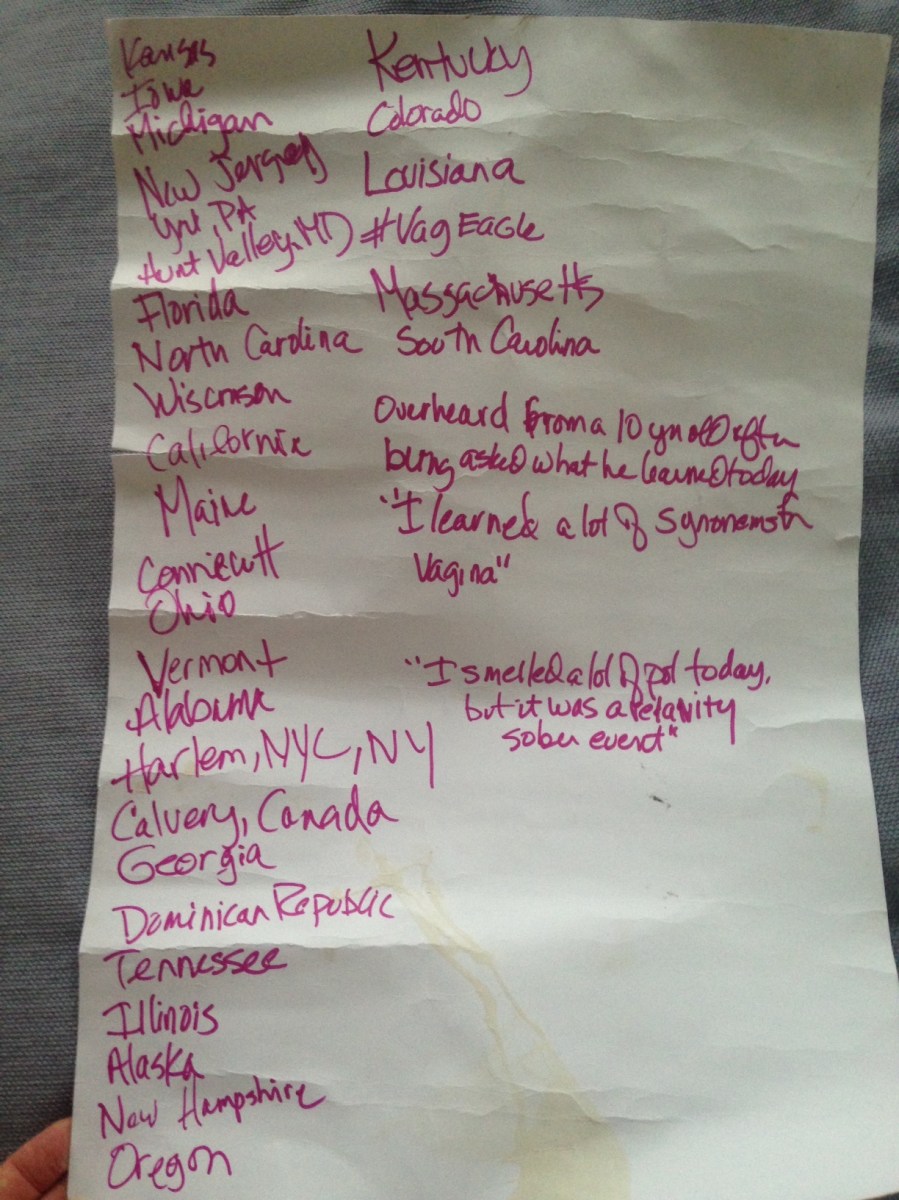 Kansas
Iowa
Michigan
New Jersey
York, PA
Hunt Valley, MD
Florida
North Carolina
Wisconson
California
Maine
Ohio
Vermont
Alabama
Harlem, NYC, NY
Calvery, Canada
Georgia
Dominican Republic
Tennessee
Illinois
Alaska
New Hampshire
Oregon
Kentucky
Colorado
Louisiana
#VagEagle
Massachusetts
South Carolina
Overheard from a 10 yr old after
being asked what he learned today
"I learned a lot of synonems for
Vagina"
"I smelled a lot of pot today,
but it was a relativity
sober event"